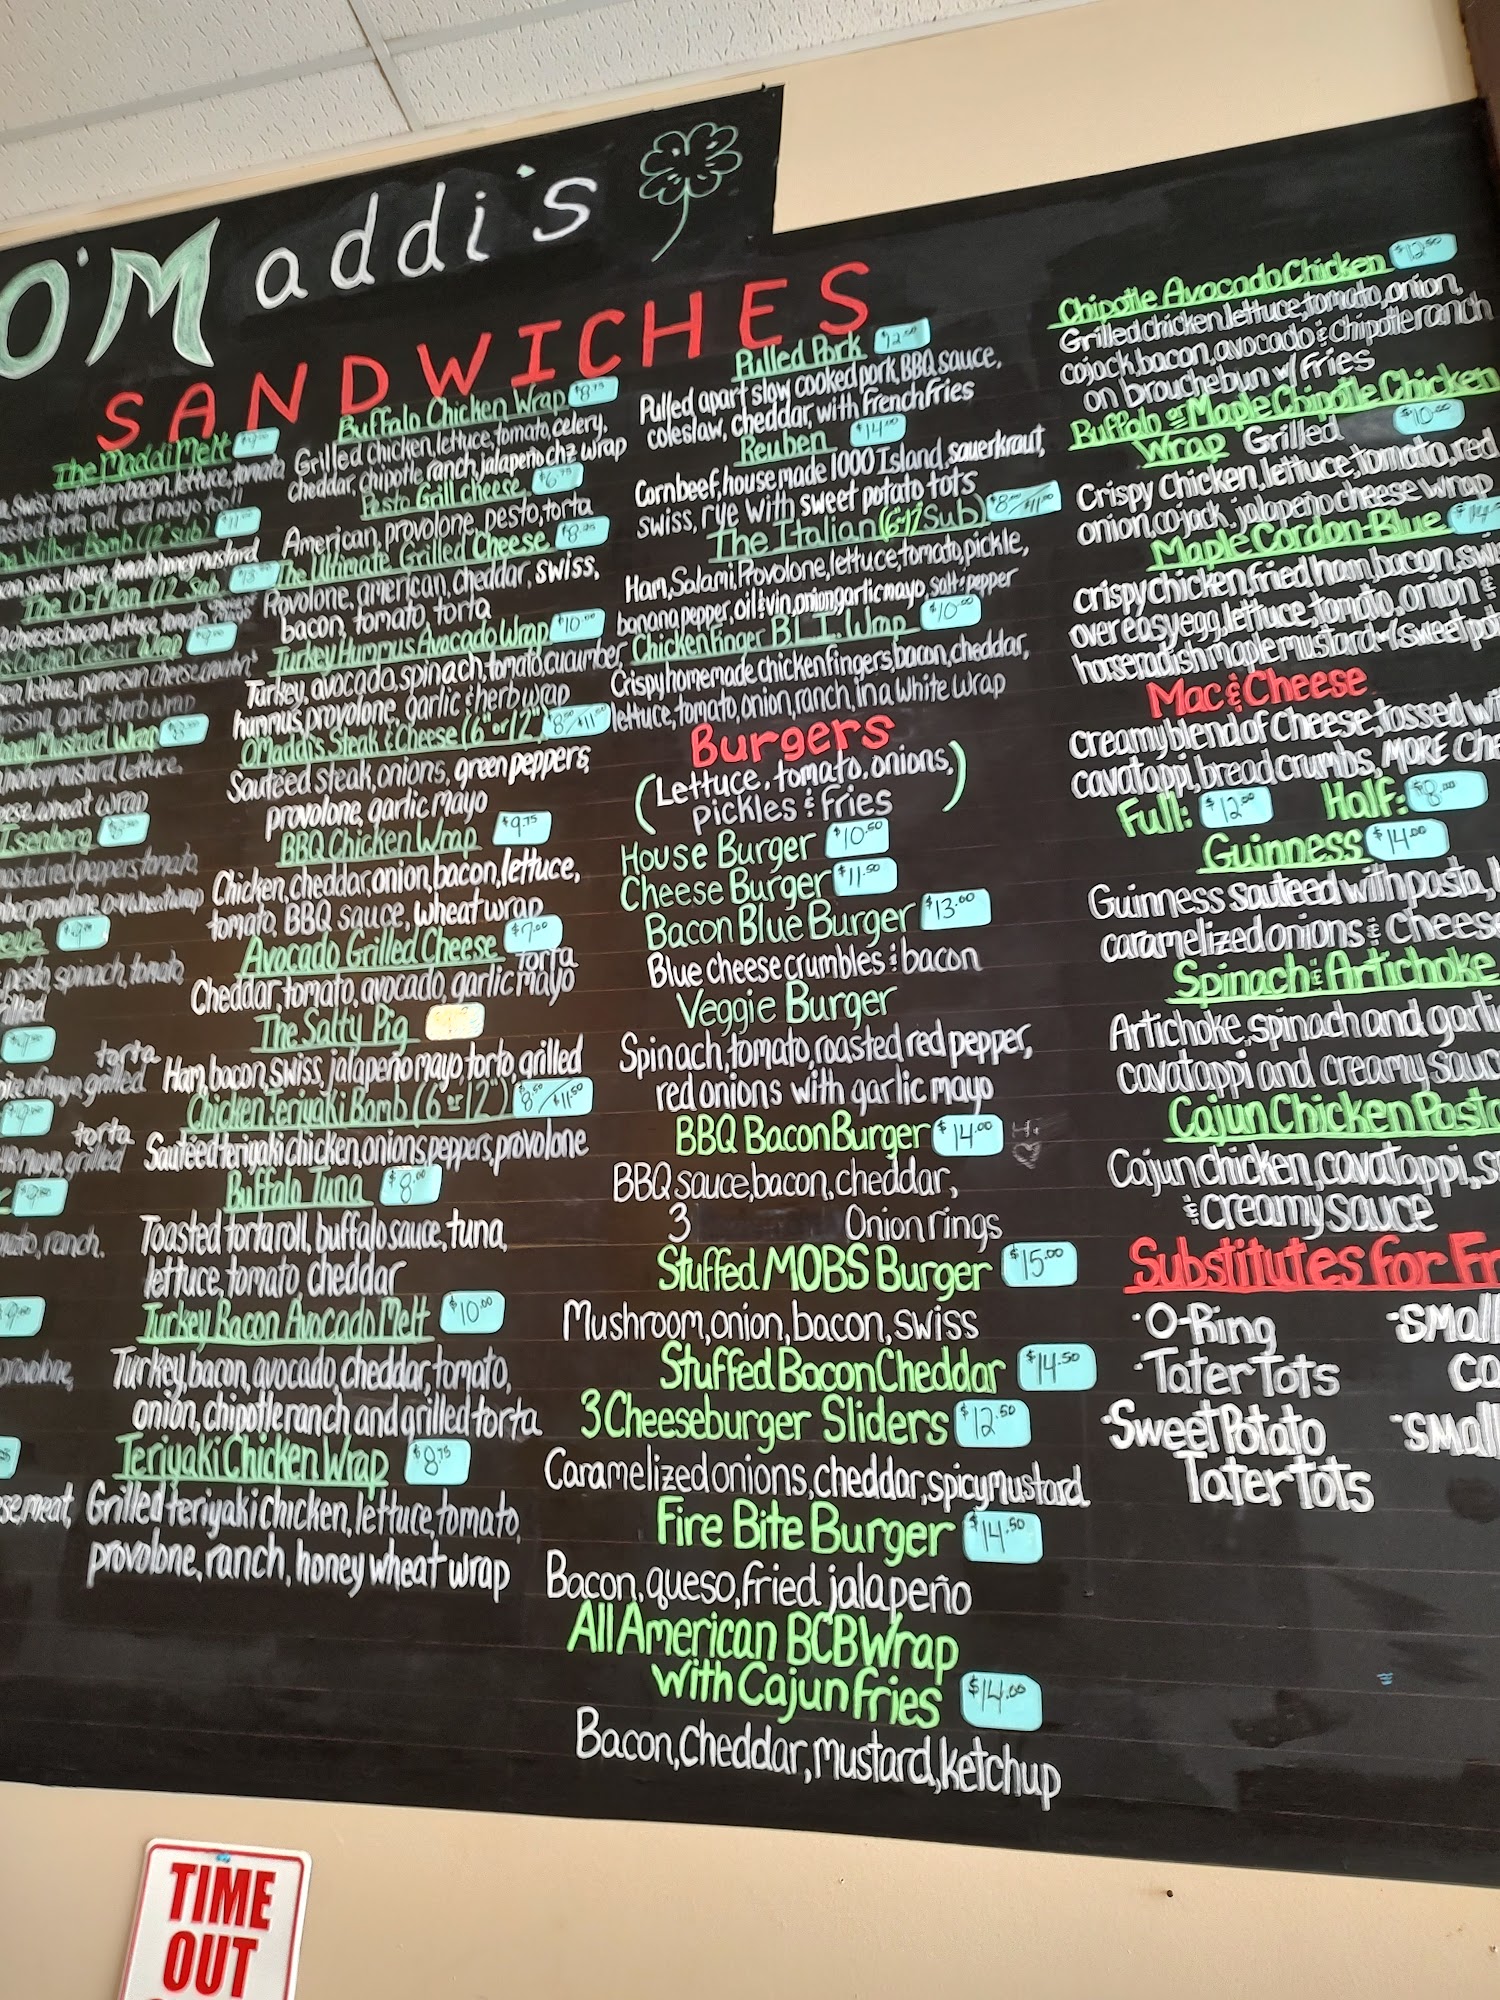 O'Maddi's
SANDWICHES
The Maddi Melt
bacon, lettuce, tomato
torta roll, add mayo too!!
Wilbur Bomb (12" sub) $11.00
honey mustard
The O-Man (12" Sub)
cheeses, bacon, lettuce, tomato
Chicken Caesar Wrap $9.00
lettuce, parmesan cheese, croutons
garlic & herb wrap
Honey Mustard Wrap
honey mustard, lettuce,
wheat wrap
Isenberg
roasted red peppers, tomato,
provolone, wheat wrap
pesto, spinach, tomato
grilled
torta
mayo, grilled
torta
mayo, grilled
tomato, ranch.
provolone,
cheese, meat,
Buffalo Chicken Wrap $8.75
Grilled chicken, lettuce, tomato, celery,
cheddar, chipotle ranch, jalapeño chz wrap
Pesto Grill cheese $6.75
American, provolone, pesto, torta
The Ultimate Grilled Cheese $8.25
Provolone, american, cheddar, swiss,
bacon, tomato, torta
Turkey Hummus Avocado Wrap $10.00
Turkey, avocado, spinach, tomato, cucumber
hummus, provolone, garlic & herb wrap
O'Maddi's Steak & Cheese (6" or 12")
Sautéed steak, onions, green peppers,
provolone, garlic mayo
BBQ Chicken Wrap $9.75
Chicken, cheddar, onion, bacon, lettuce,
tomato, BBQ sauce, wheat wrap
Avocado Grilled Cheese $7.00
torta
Cheddar, tomato, avocado, garlic mayo
The Salty Pig
Ham, bacon, swiss, jalapeño mayo torta, grilled
Chicken Teriyaki Bomb (6" or 12") $8.50/$11.50
Sautéed teriyaki chicken, onions, peppers, provolone
Buffalo Tuna $8.00
Toasted torta roll, buffalo sauce, tuna,
lettuce, tomato, cheddar
Turkey Bacon Avocado Melt $10.00
Turkey, bacon, avocado, cheddar, tomato,
onion, chipotle ranch and grilled torta
Teriyaki Chicken Wrap $8.75
Grilled teriyaki chicken, lettuce, tomato,
provolone, ranch, honey wheat wrap
Pulled Pork $12.00
Pulled apart slow cooked pork, BBQ sauce,
coleslaw, cheddar, with French Fries
Reuben $14.00
Cornbeef, house made 1000 Island, sauerkraut,
swiss, rye with sweet potato tots
The Italian (6-12" Sub) $8.00/$11.00
Ham, Salami, Provolone, lettuce, tomato, pickle,
banana pepper, oil & vin, onion, garlic mayo, salt & pepper
Chicken Finger B.L.T. Wrap $10.00
Crispy homemade chicken fingers, bacon, cheddar,
lettuce, tomato, onion, ranch, in a white wrap
Burgers
(Lettuce, tomato, onions,
pickles & fries)
House Burger $10.50
Cheese Burger $11.50
Bacon Blue Burger $13.00
Blue cheese crumbles & bacon
Veggie Burger
Spinach, tomato, roasted red pepper,
red onions with garlic mayo
BBQ Bacon Burger $14.00
Hi
BBQ sauce, bacon, cheddar,
3 Onion rings
Stuffed MOBS Burger $15.00
Mushroom, onion, bacon, swiss
Stuffed Bacon Cheddar $14.50
3 Cheeseburger Sliders $12.50
Caramelized onions, cheddar, spicy mustard
Fire Bite Burger $14.50
Bacon, queso, fried jalapeño
All American BCB Wrap
with Cajun fries $14.00
Bacon, Cheddar, mustard, ketchup
Chipotle Avocado Chicken $12.50
Grilled chicken, lettuce, tomato, onion,
cojack, bacon, avocado & chipotle ranch
on brouche bun w/ fries
Buffalo or Maple Chipotle Chicken
Wrap Grilled $10.00
Crispy Chicken, lettuce, tomato, red
onion, cojack, jalapeño cheese wrap
Maple Cordon-Blue
crispy chicken, fried ham, bacon, swi
over easy egg, lettuce, tomato, onion &
horseradish maple mustard (sweet pot
Mac & Cheese
Creamy blend of Cheese, tossed wi
cavatappi, bread crumbs, MORE Che
Full: $12.00 Half: $8.00
Guinness $14.00
Guinness sauteed with pasta,
caramelized onions & Cheese
Spinach & Artichoke
Artichoke, spinach and garli
cavatappi and creamy sauc
Cajun Chicken Pasta
Cajun chicken, cavatappi, s
& creamy sauce
Substitutes for Fr
·O-Ring
·Tater Tots
·Sweet Potato
Tater Tots
·Small
Co
·Small
TIME
OUT